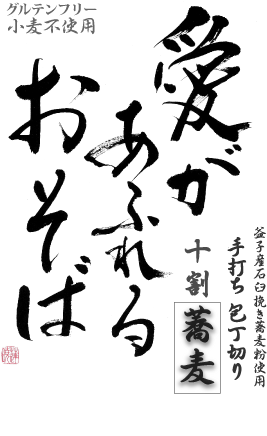 グルテンフリー
小麦不使用
愛が
あふれる
おそば
益子産石臼挽き蕎麦粉使用
手打ち 包丁切り
十割
蕎麦